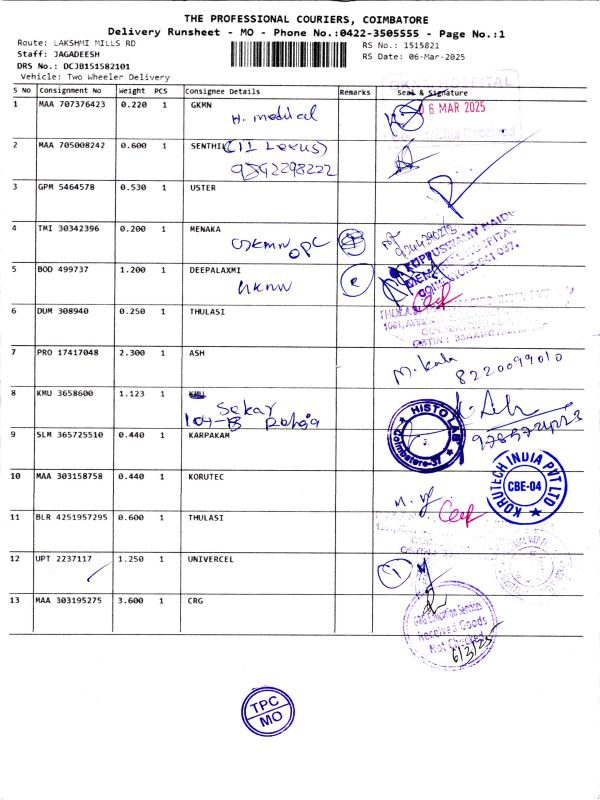 THE PROFESSIONAL COURIERS, COIMBATORE
Delivery Runsheet - MO - Phone No.:0422-3505555 - Page No.:1
Route: LAKSHMI MILLS RD
RS No.: 1515821
Staff: JAGADEESH
RS Date: 06-Mar-2025
DRS No.: DCJB151582101
Vehicle: Two Wheeler Delivery
S No Consignment No Weight PCS Consignee Details Remarks Seal & Signature
1 MAA 707376423 0.220 1 GKMN
H. medical
06 MAR 2025
2 MAA 705008242 0.600 1 SENTHIL (11 Lexus)
9842298222
3 GPM 5464578 0.530 1 USTER
4 TMI 30342396 0.200 1 MENAKA
GKMN OPC
KUPPUSWAMY NAIDU
HOSPITAL
COIMBATORE-641 037.
5 BOD 499737 1.200 1 DEEPALAXMI
6 DUM 308940 0.250 1 THULASI
7 PRO 17417048 2.300 1 ASH
M. Kala
8220099010
8 KMU 3658600 1.123 1 KMU
Sekar
104-B
HISTO LAB
Coimbatore-37
9 SLM 365725510 0.440 1 KARPAKAM
10 MAA 303158758 0.440 1 KORUTEC
KORUTECH INDIA PVT LTD
CBE-04
11 BLR 4251957295 0.600 1 THULASI
12 UPT 2237117 1.250 1 UNIVERCEL
13 MAA 303195275 3.600 1 CRG
GRG Education Services
Received Goods
Not Checked
6/3/25
TPC
MO